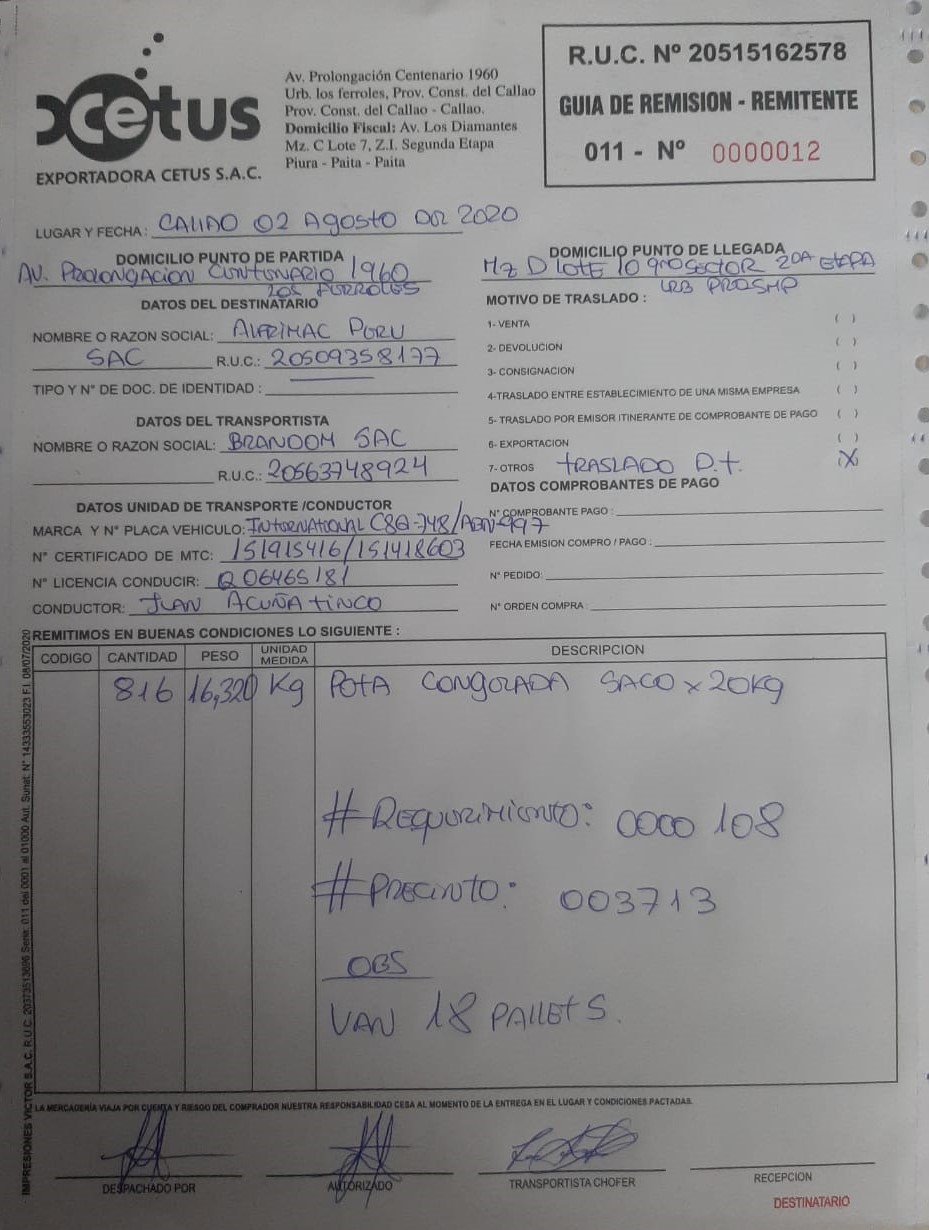 Cetus
EXPORTADORA CETUS S.A.C.
Av. Prolongación Centenario 1960
Urb. los ferroles, Prov. Const. del Callao
Prov. Const. del Callao - Callao.
Domicilio Fiscal: Av. Los Diamantes
Mz. C Lote 7, Z.I. Segunda Etapa
Piura - Paita - Paita
R.U.C. Nº 20515162578
GUIA DE REMISION - REMITENTE
011 - Nº 0000012
LUGAR Y FECHA : CALLAO 02 AGOSTO DEL 2020
DOMICILIO PUNTO DE PARTIDA
AV. PROLONGACION CENTENARIO 1960
LOS FERROLES
DOMICILIO PUNTO DE LLEGADA
MZ D LOTE 10 SECTOR 2DA ETAPA
URB
DATOS DEL DESTINATARIO
NOMBRE O RAZON SOCIAL: ALPRIMAC PERU
SAC R.U.C.: 20509358177
TIPO Y N° DE DOC. DE IDENTIDAD :
DATOS DEL TRANSPORTISTA
NOMBRE O RAZON SOCIAL: BRANDOM SAC
R.U.C.: 20563748924
DATOS UNIDAD DE TRANSPORTE /CONDUCTOR
MARCA Y N° PLACA VEHICULO: INTERNATIONAL
N° CERTIFICADO DE MTC: 151915416/151418603
N° LICENCIA CONDUCIR: Q06465181
CONDUCTOR: JUAN ACUÑA TINCO
MOTIVO DE TRASLADO :
1- VENTA ( )
2- DEVOLUCION ( )
3- CONSIGNACION ( )
4-TRASLADO ENTRE ESTABLECIMIENTO DE UNA MISMA EMPRESA ( )
5- TRASLADO POR EMISOR ITINERANTE DE COMPROBANTE DE PAGO ( )
6- EXPORTACION ( )
7- OTROS TRASLADO P.t. X
DATOS COMPROBANTES DE PAGO
N° COMPROBANTE PAGO :
FECHA EMISION COMPRO / PAGO :
N° PEDIDO:
N° ORDEN COMPRA :
REMITIMOS EN BUENAS CONDICIONES LO SIGUIENTE :
CODIGO CANTIDAD PESO UNIDAD MEDIDA DESCRIPCION
816 16,320 Kg POTA CONGELADA SACO x 20Kg
# Requerimiento: 0000 108
# Precinto: 003713
OBS
VAN 18 PALLETS.
IMPRESIONES VICTOR S.A.C. R.U.C. 20373513696 Serie: 011 del 0001 al 01000 Aut. Sunat. N° 14333553023 F.I. 08/07/2020
LA MERCADERÍA VIAJA POR CUENTA Y RIESGO DEL COMPRADOR NUESTRA RESPONSABILIDAD CESA AL MOMENTO DE LA ENTREGA EN EL LUGAR Y CONDICIONES PACTADAS.
DESPACHADO POR
AUTORIZADO
TRANSPORTISTA CHOFER
RECEPCION
DESTINATARIO